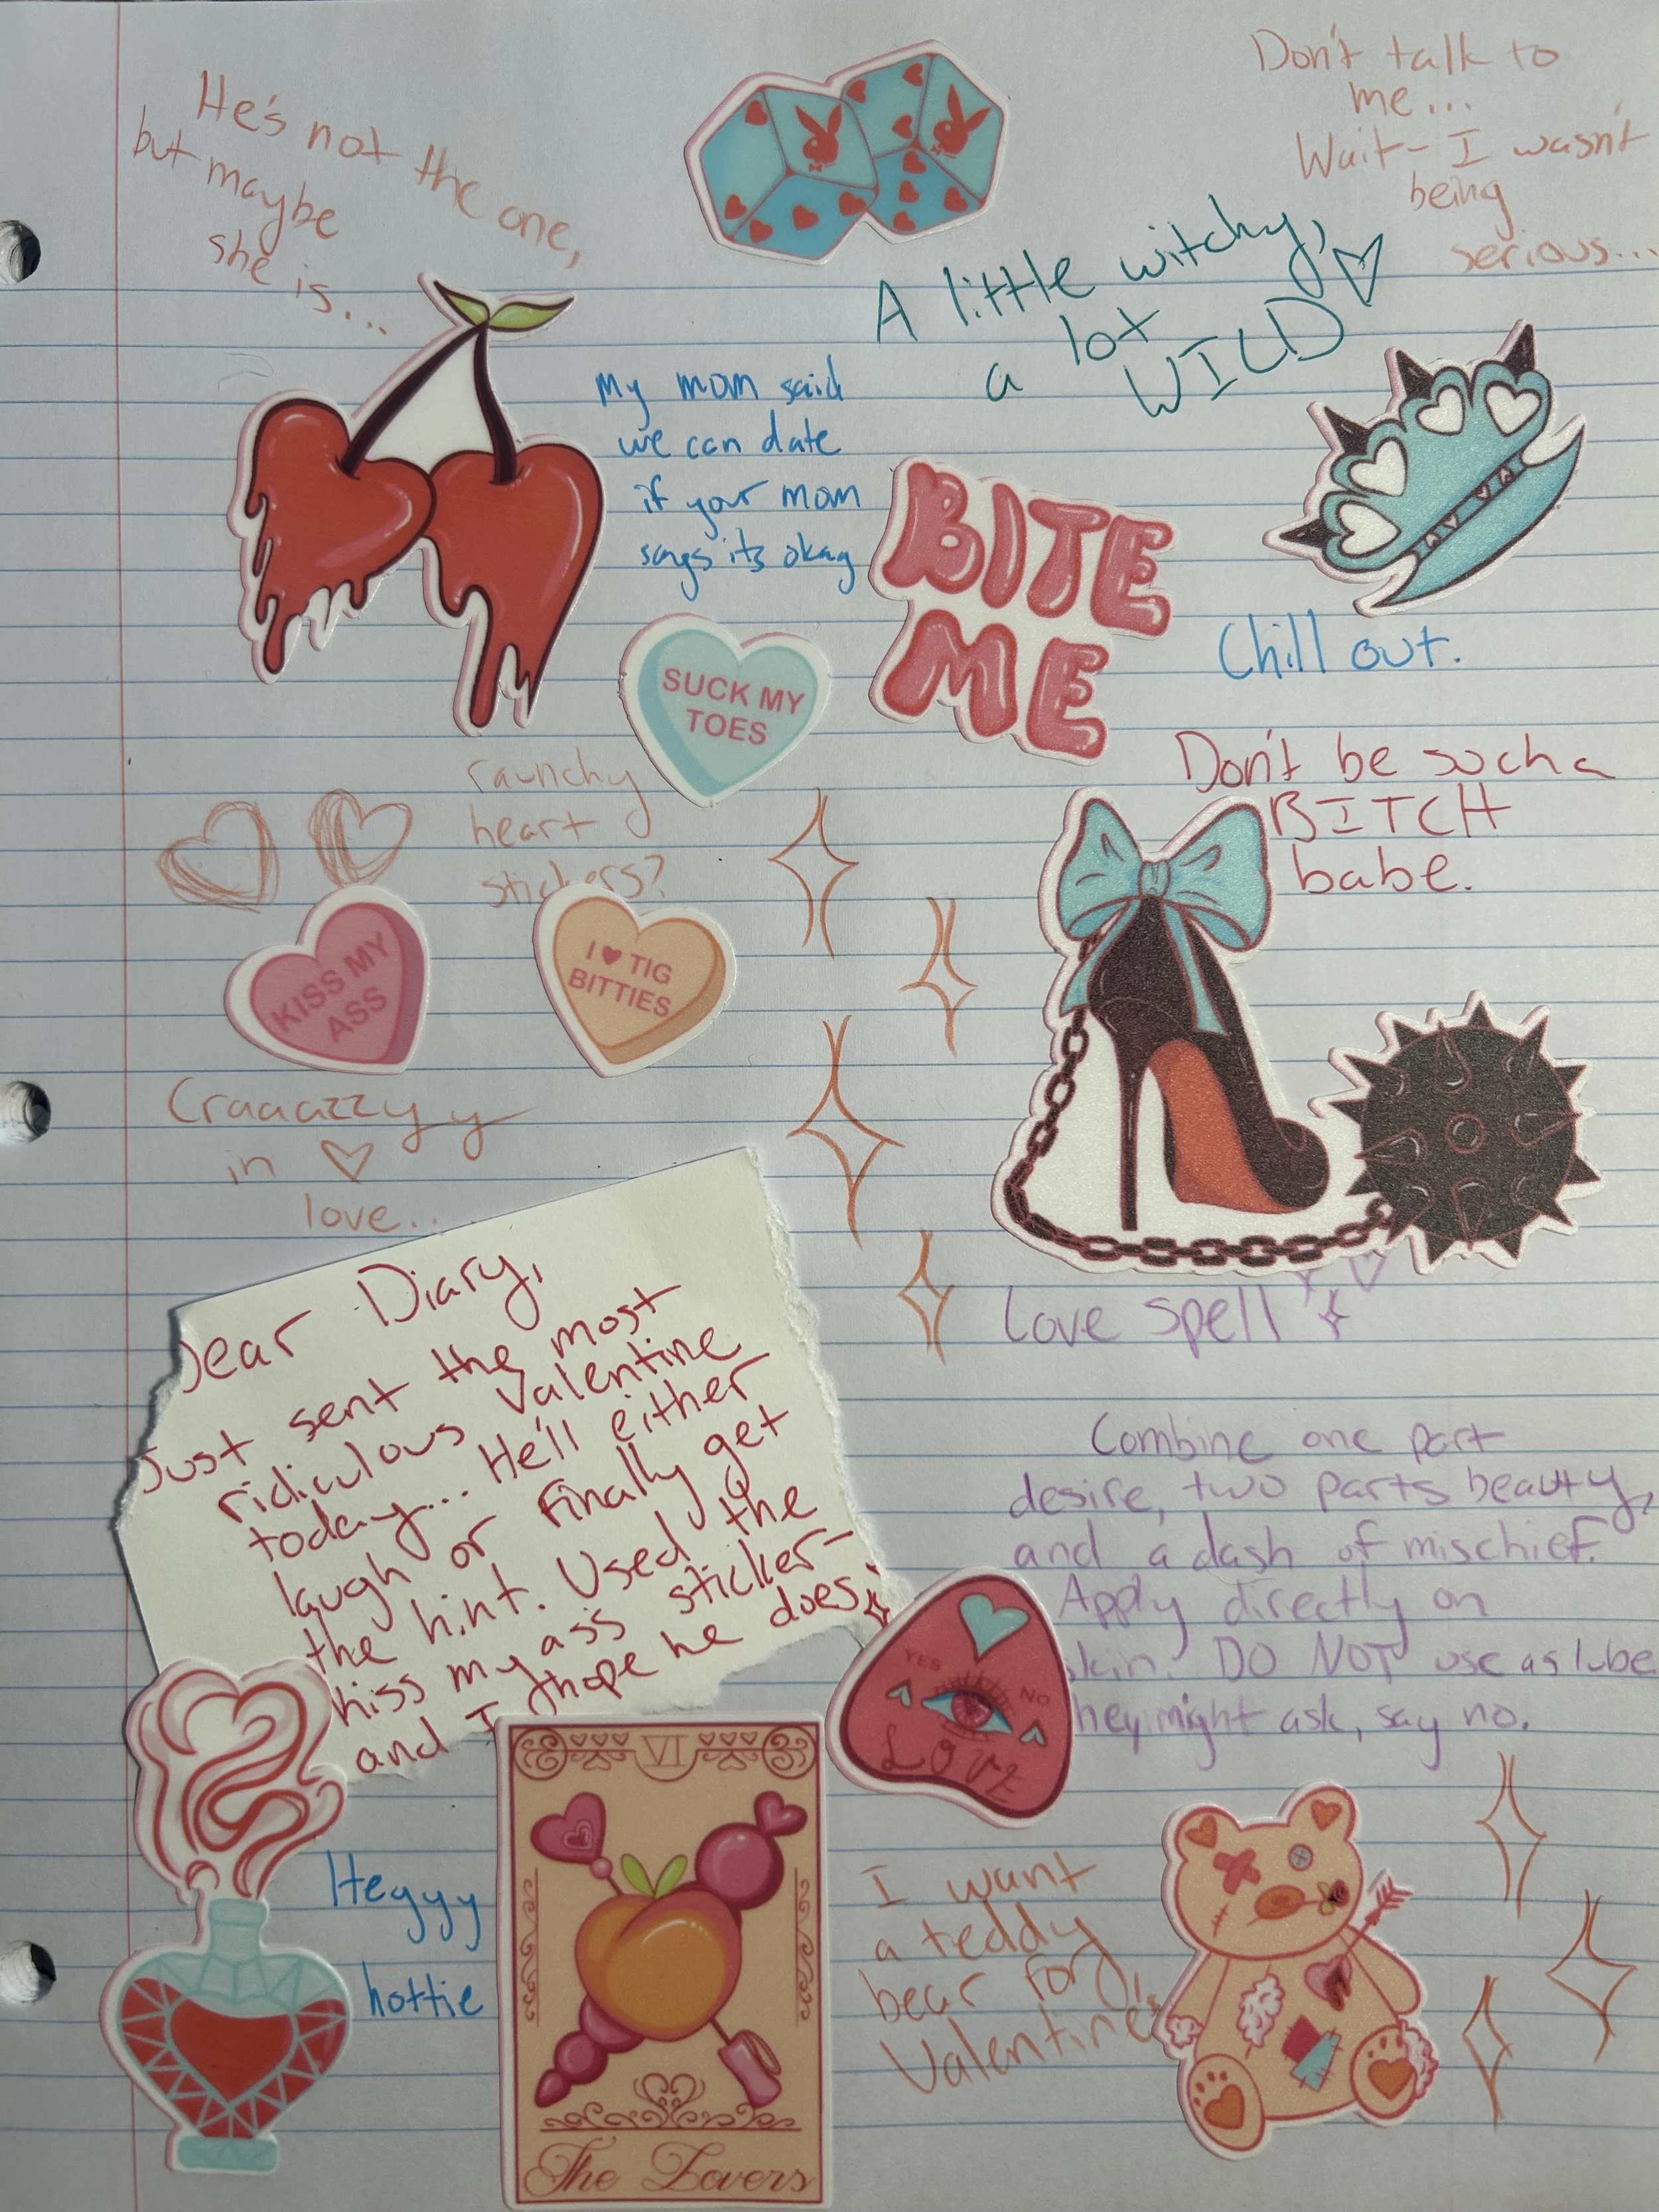 He's not the one,
but maybe
she is...
Don't talk to
me...
Wait- I wasn't
being
serious...
A little witchy,
a lot
WILD
My mom said
we can date
if your mom
says its okay
BITE
ME
Chill out.
SUCK MY
TOES
Don't be such a
BITCH
babe.
raunchy
heart
stickers?
KISS MY
ASS
I ♥ TIG
BITTIES
Craaazzyy
in ♡
love...
Love spell
Combine one part
desire, two parts beauty,
and a dash of mischief.
Apply directly on
skin. DO NOT use as lube
hey might ask, say no.
Dear Diary,
Just sent the most
ridiculous Valentine
today... He'll either
laugh or finally get
the hint. Used the
kiss my ass sticker-
and I hope he does.
YES
NO
LOVE
Heyyy
hottie
VI
The Lovers
I want
a teddy
bear for
Valentine's